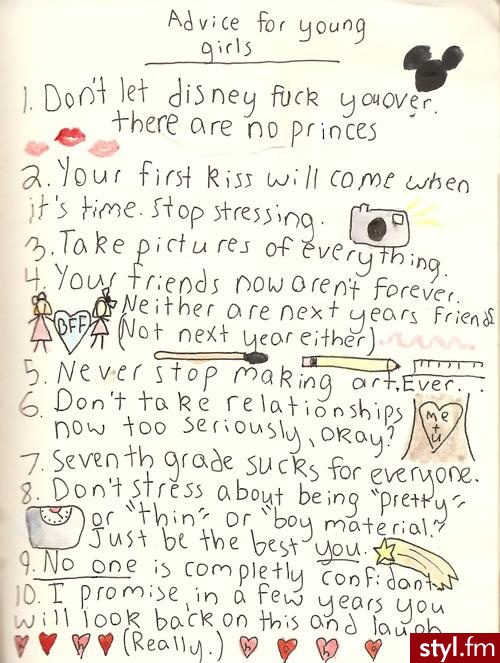 Advice for young
girls
1. Don't let disney fuck you over.
there are no princes
2. Your first kiss will come when
it's time. Stop stressing.
3. Take pictures of everything.
4. Your friends now aren't forever.
Neither are next years friends
BFF
(Not next year either)
5. Never stop making art. Ever.
6. Don't take relationships
now too seriously, okay?
me
+
u
7. Seventh grade sucks for everyone.
8. Don't stress about being "pretty"
or "thin" or "boy material."
Just be the best you.
9. No one is completly confidant
10. I promise, in a few years you
will look back on this and laugh
(Really.)
h
h
styl.fm